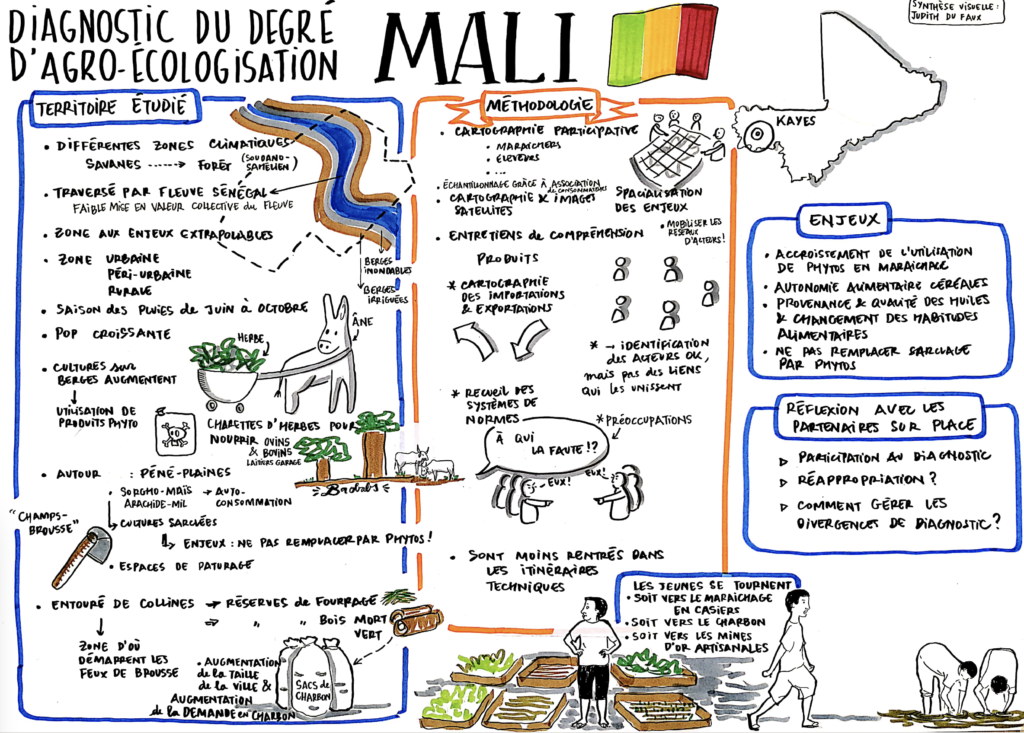 DIAGNOSTIC DU DEGRÉ
D'AGRO-ÉCOLOGISATION
MALI
SYNTHÈSE VISUELLE :
JUDITH DU FAUX
KAYES
TERRITOIRE ÉTUDIÉ
• DIFFÉRENTES ZONES CLIMATIQUES
SAVANES ----→ FORÊT (SOUDANO-
SAHÉLIEN)
• TRAVERSÉ PAR FLEUVE SÉNÉGAL
FAIBLE MISE EN VALEUR COLLECTIVE du FLEUVE
• ZONE AUX ENJEUX EXTRAPOLABLES
• ZONE URBAINE
PÉRI-URBAINE
RURALE
BERGES
INONDABLES
BERGES
IRRIGUÉES
• SAISON des PLUIES de JUIN À OCTOBRE
• POP CROISSANTE
ÂNE
HERBE
• CULTURES sur
BERGES AUGMENTENT
UTILISATION DE
PRODUITS PHYTO
CHARETTES D'HERBES POUR
NOURRIR OVINS
& BOVINS
LAITIERS GARAGE
Baobabs
• AUTOUR : PÉNÉ-PLAINES
• SORGHO-MAÏS → AUTO-
ARACHIDE-MIL CONSOMMATION
"CHAMPS-
BROUSSE"
• CULTURES SARCLÉES
↳ ENJEUX : NE PAS REMPLACER PAR PHYTOS !
• ESPACES DE PATURAGE
• ENTOURÉ DE COLLINES → RÉSERVES de FOURRAGE
⇒ " " BOIS MORT
VERT
ZONE D'OÙ
DÉMARRENT LES
FEUX DE BROUSSE
• AUGMENTATION
de la TAILLE
de la VILLE &
AUGMENTATION
de la DEMANDE en CHARBON
SACS de
CHARBON
MÉTHODOLOGIE
• CARTOGRAPHIE PARTICIPATIVE
• MARAÎCHERS
• ÉLEVEURS
• ...
• ÉCHANTILLONNAGE GRÂCE À ASSOCIATION
de CONSOMMATEURS
• CARTOGRAPHIE & IMAGES
SATELLITES
SPACIALISATION
DES ENJEUX
• ENTRETIENS de COMPRÉHENSION
• MOBILISER LES
RÉSEAUX
D'ACTEURS !
PRODUITS
* CARTOGRAPHIE
DES IMPORTATIONS
& EXPORTATIONS
* → IDENTIFICATION
des ACTEURS OK,
MAIS PAS des LIENS
QUI LES UNISSENT
* RECUEIL DES
SYSTÈMES DE
NORMES
* PRÉOCCUPATIONS
À QUI
LA FAUTE !?
EUX !
EUX !
• SONT MOINS RENTRÉS DANS
LES ITINÉRAIRES
TECHNIQUES
LES JEUNES SE TOURNENT
• SOIT VERS LE MARAICHAGE
EN CASIERS
• SOIT VERS LE CHARBON
• SOIT VERS LES MINES
D'OR ARTISANALES
ENJEUX
• ACCROISTEMENT DE L'UTILISATION
DE PHYTOS EN MARAICHAGE
• AUTONOMIE ALIMENTAIRE CÉRÉALES
• PROVENANCE & QUALITÉ DES HUILES
& CHANGEMENT DES HABITUDES
ALIMENTAIRES
• NE PAS REMPLACER SARCLAGE
PAR PHYTOS
RÉFLEXION AVEC LES
PARTENAIRES SUR PLACE
▷ PARTICIPATION AU DIAGNOSTIC
▷ RÉAPPROPRIATION ?
▷ COMMENT GÉRER LES
DIVERGENCES DE DIAGNOSTIC ?